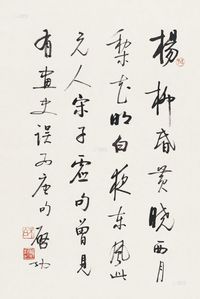 楊柳昏黃曉西月
梨花明白夜東風此
元人宋子虛句曾見
有畫史誤爲唐句啟功